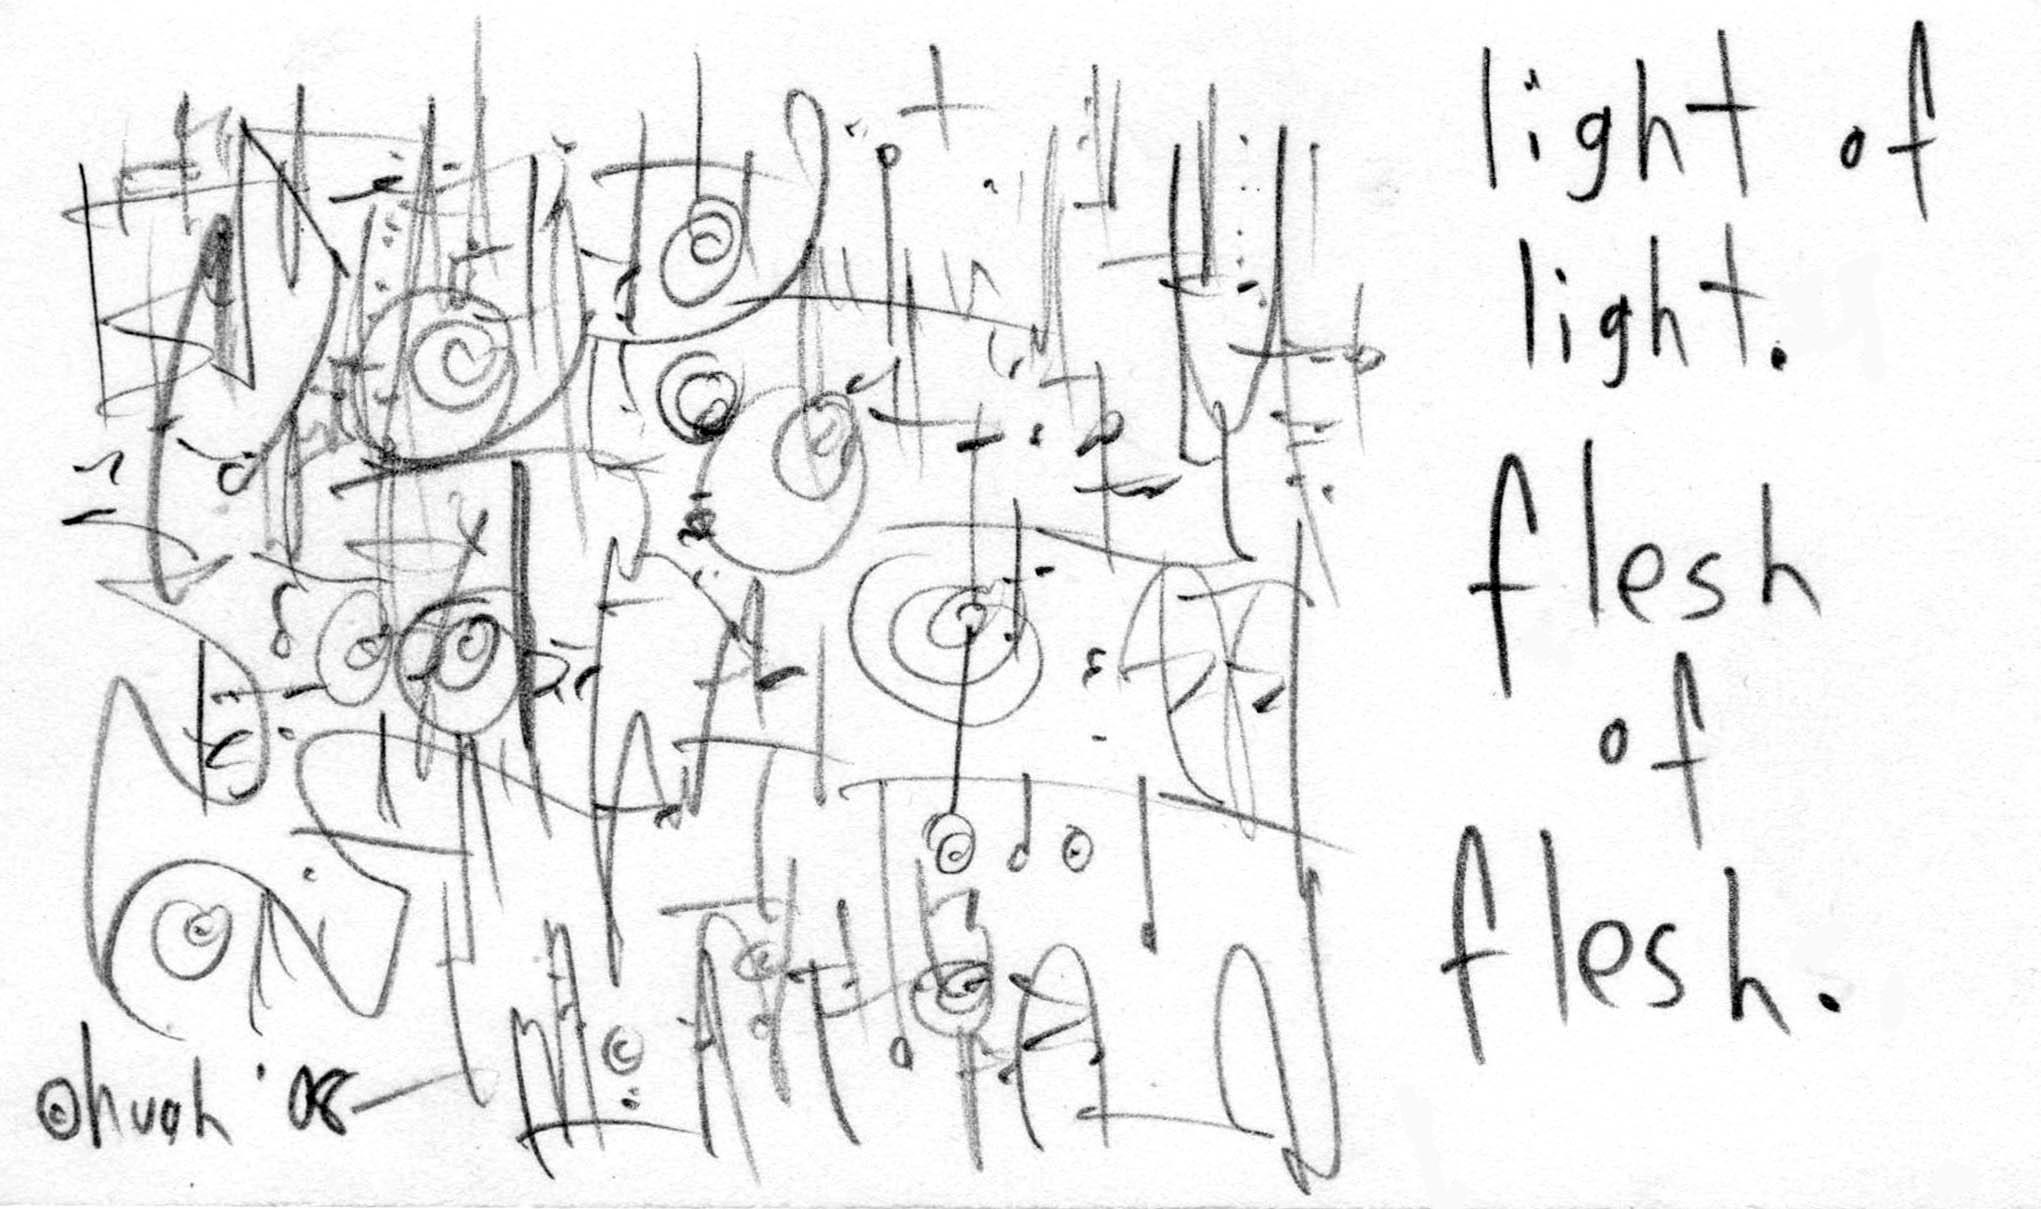 light of
light.
flesh
of
flesh.
©hugh '08